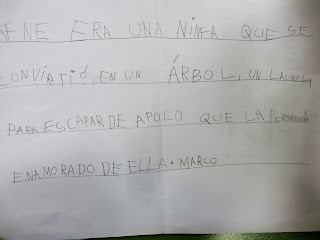 AFNE ERA UNA NINFA QUE SE
CONVIATIÓ, EN UN ÁRBOL, UN LAUREL,
PARA ESCAPAR DE APOLO QUE LA PERSEGUÍA
ENAMORADO DE ELLA. MARCO